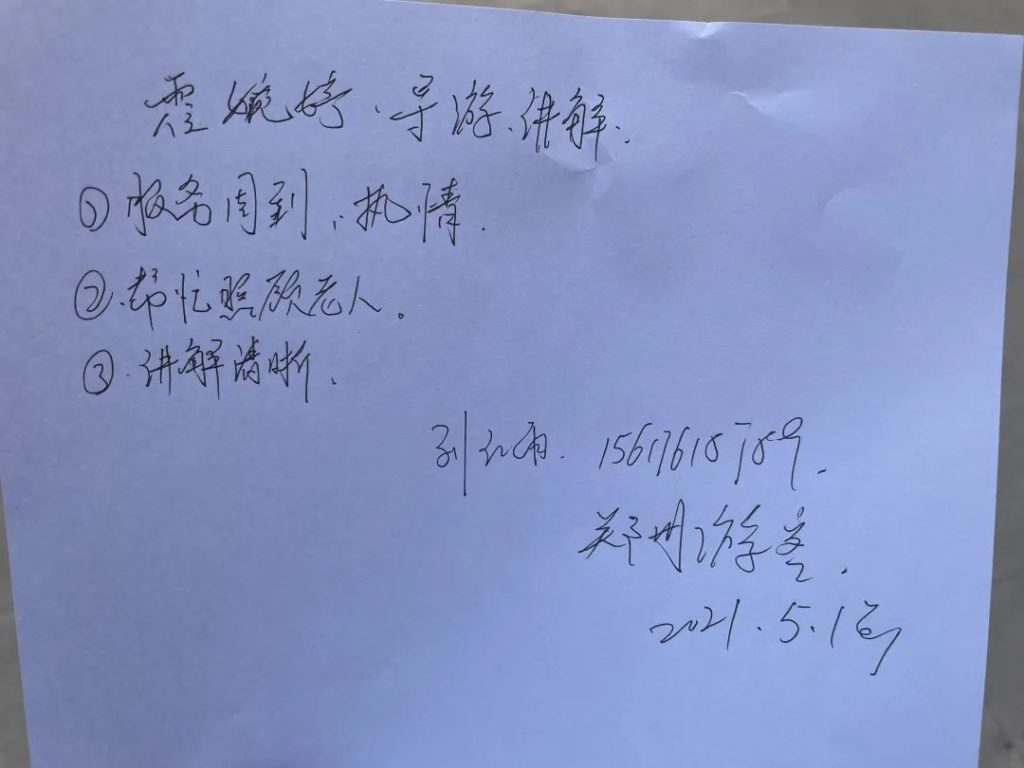 霍婉婷、导游、讲解.
① 服务周到、热情.
② 帮忙照顾老人。
③、讲解清晰.
刘红雨. 15617618789.
郑州游客.
2021.5.1号